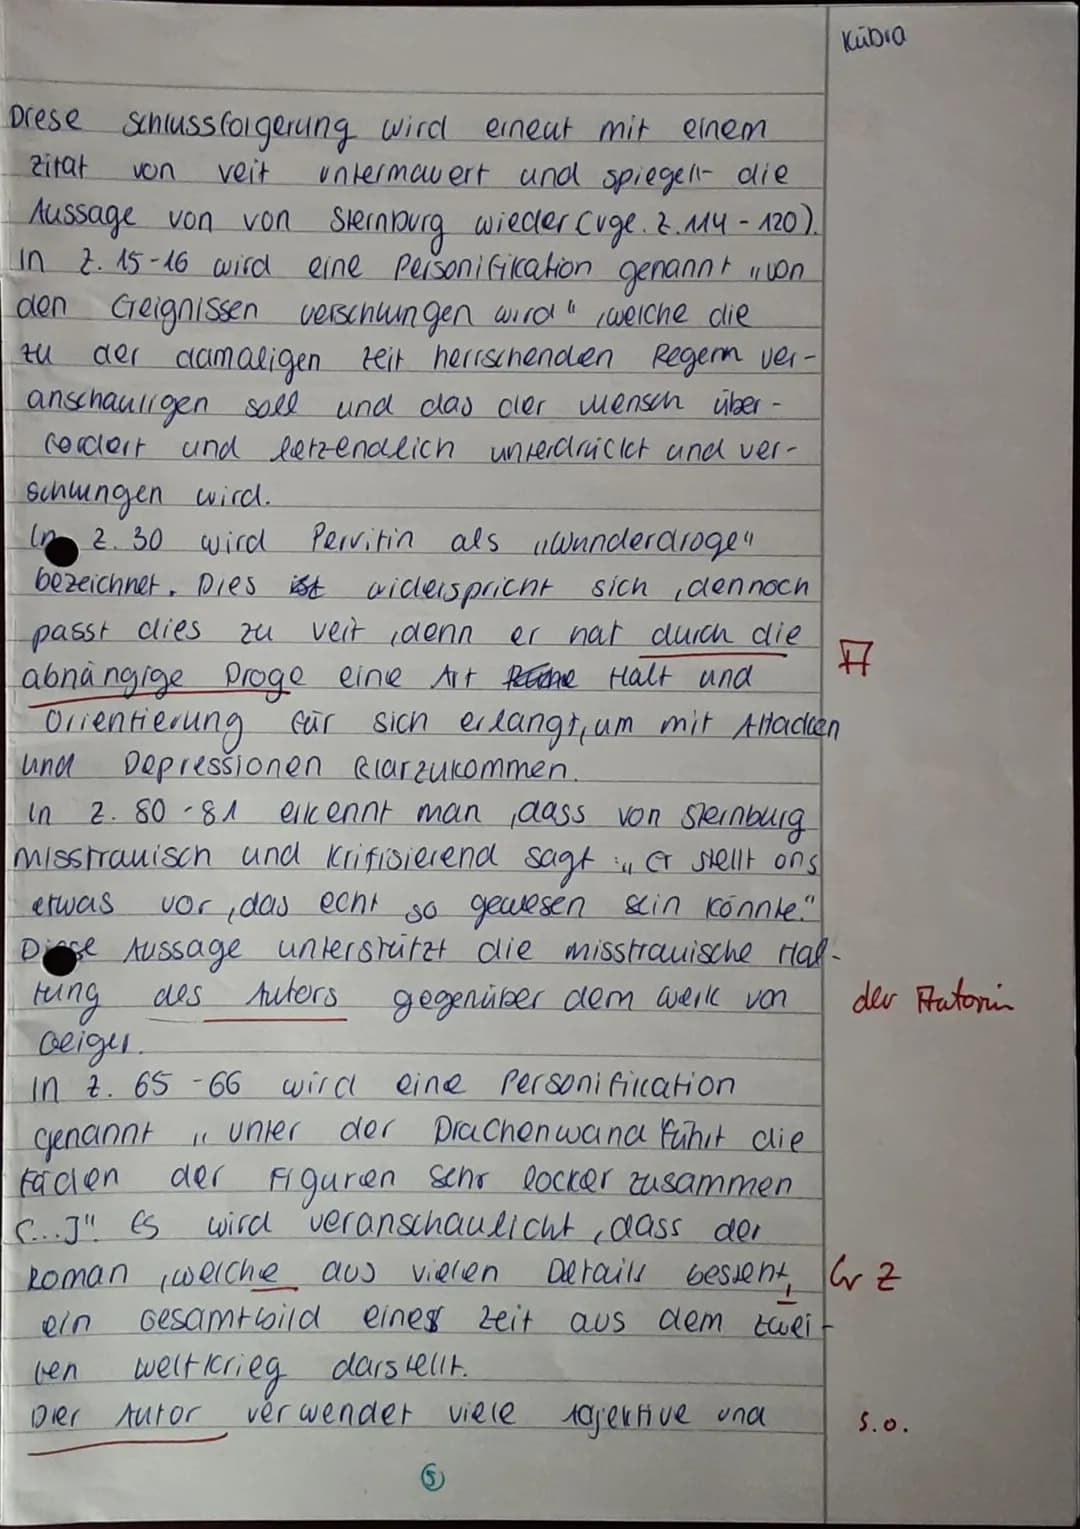 Kübra
Diese Schlussfolgerung wird erneut mit einem
Zitat von Veit untermauert und spiegelt die
Aussage von von Sternburg wieder (vgl. Z. 114 - 120).
In Z. 15-16 wird eine Personifikation genannt „von
den Ereignissen verschlungen wird“, welche die
zu der damaligen Zeit herrschenden Regeln ver-
anschauligen soll und das der Mensch über-
fordert und letzendlich unterdrückt und ver-
schlungen wird.
In Z. 30 wird Pervitin als „Wunderdroge“
bezeichnet. Dies widerspricht sich, dennoch
passt dies zu Veit, denn er hat durch die
abhängige Droge eine Art Halt und
A
Orientierung für sich erlangt, um mit Attacken
und Depressionen klarzukommen.
In Z. 80 - 81 erkennt man, dass von Sternburg
misstrauisch und kritisierend sagt: „Er stellt uns
etwas vor, das echt so gewesen sein könnte."
Diese Aussage unterstützt die misstrauische Hal-
tung des Autors gegenüber dem Werk von
der Autorin
Geiger.
In Z. 65 - 66 wird eine Personifikation
genannt „Unter der Drachenwand führt die
Fäden der Figuren sehr locker zusammen
[...]". Es wird veranschaulicht, dass der
Roman, welche aus vielen Details besteht,
Gr Z
ein Gesamtbild einer Zeit aus dem zwei-
ten Weltkrieg darstellt.
Der Autor verwendet viele Adjektive und
s.o.
5